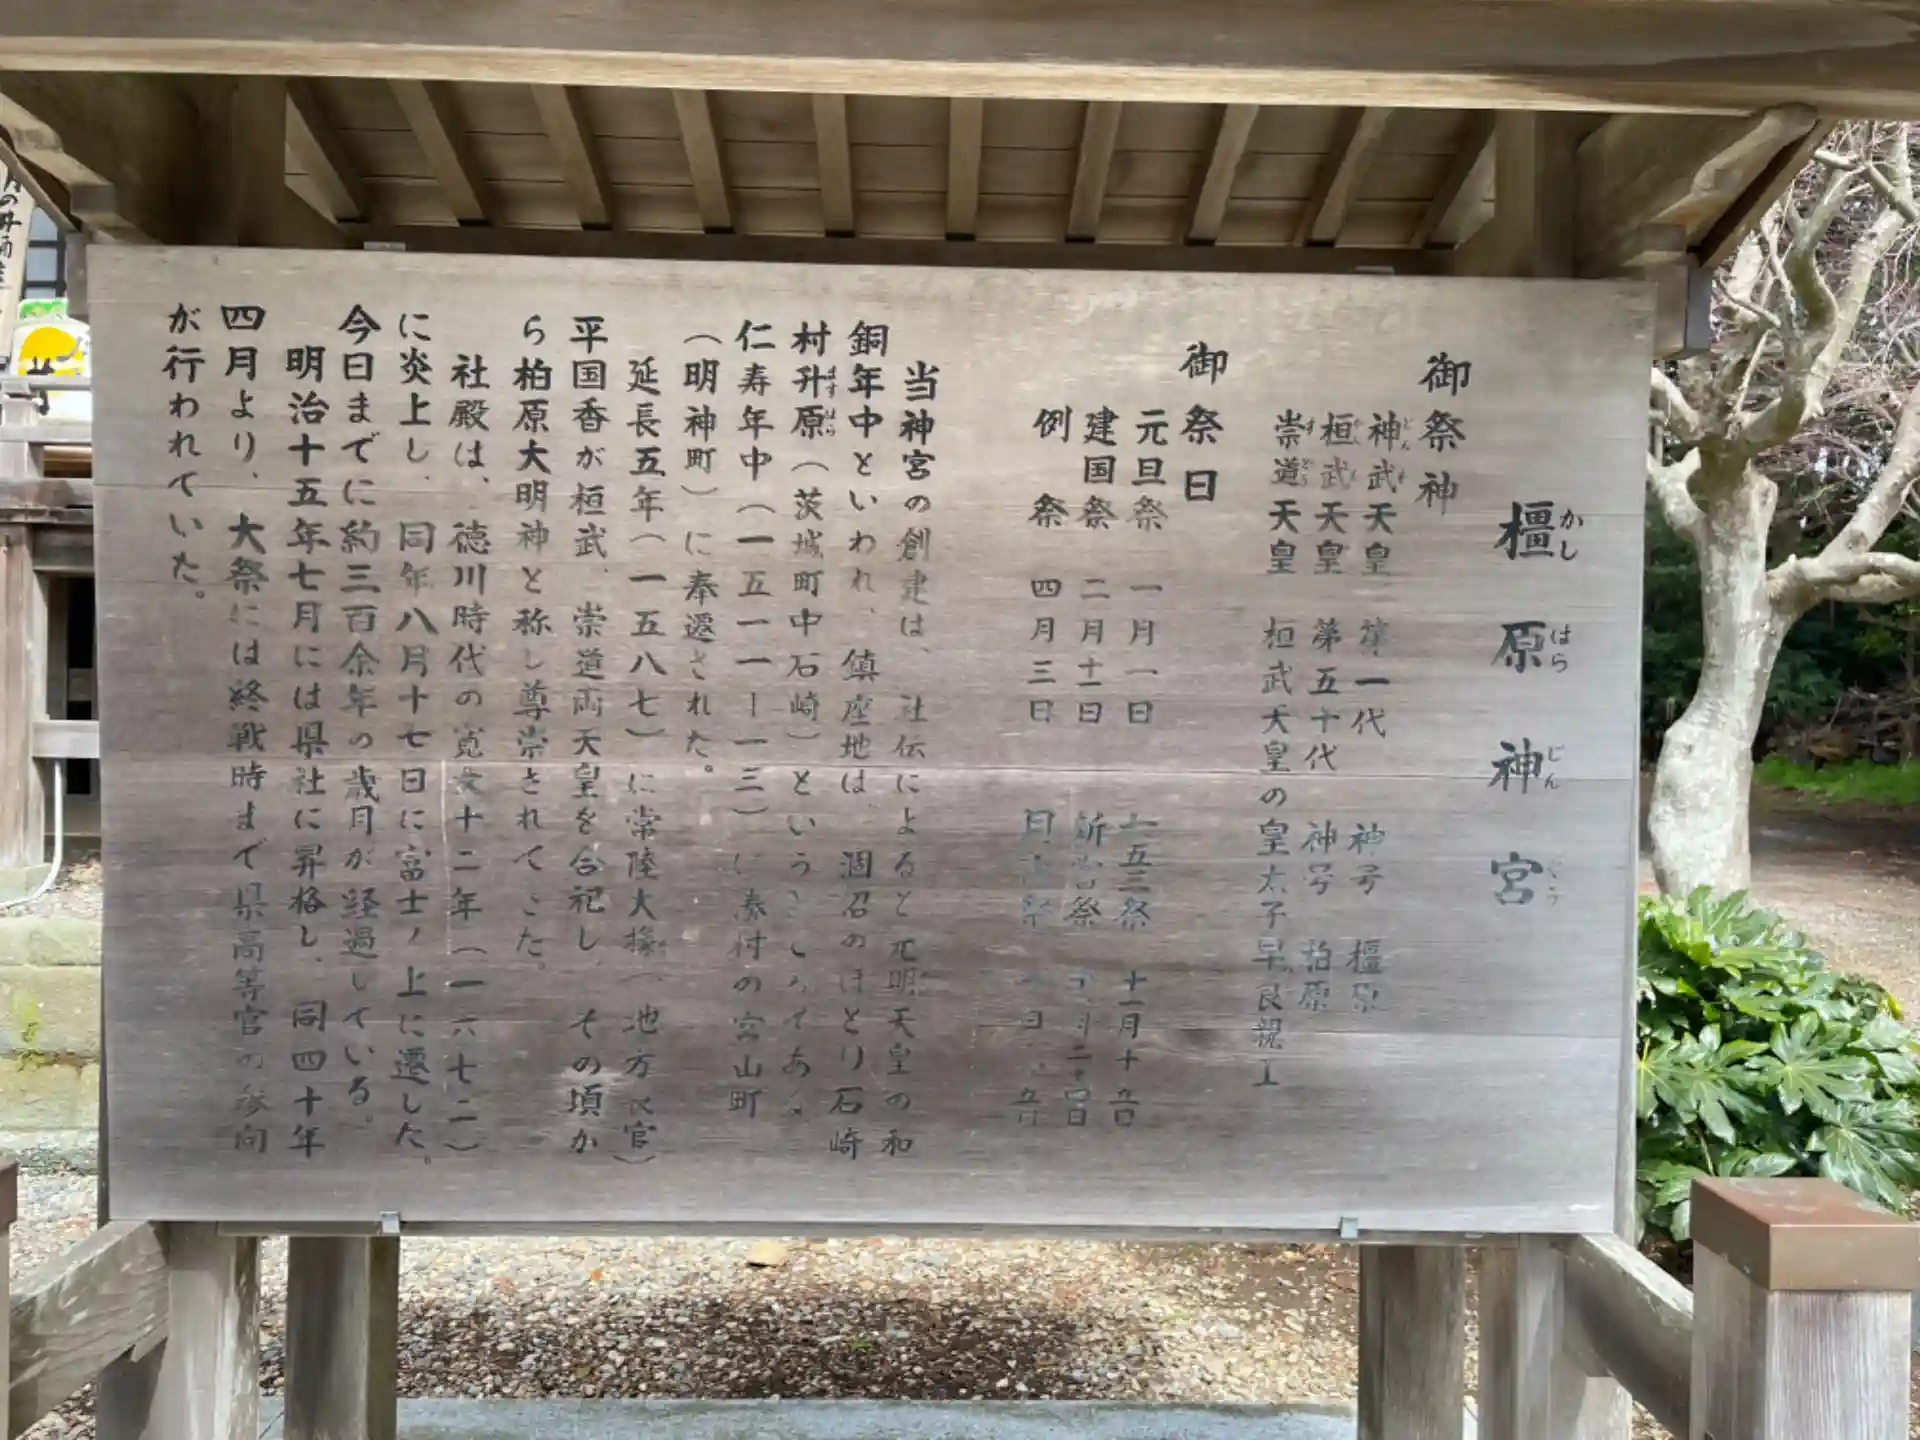 橿原神宮
かし はら じん ぐう
御祭神
神武天皇 第一代 神号 橿原
桓武天皇 第五十代 神号 柏原
崇道天皇 桓武天皇の皇太子早良親王
御祭日
元旦祭 一月一日 七五三祭 十一月十五日
建国祭 二月十一日 新嘗祭 十一月二十四日
例祭 四月三日 月次祭
当神宮の創建は、社伝によると元明天皇の和
銅年中といわれ、鎮座地は、涸沼のほとり石崎
村升原（茨城町中石崎）というところである
仁寿年中（一五一一ー一三）に湊村の宮山町
（明神町）に奉遷された。
延長五年（一五八七）に常陸大掾（地方長官）
平国香が桓武、崇道両天皇を合祀し、その頃か
ら柏原大明神と称し尊崇されてきた。
社殿は、徳川時代の寛文十二年（一六七二）
に炎上し、同年八月十七日に富士ノ上に遷した。
今日までに約三百余年の歳月が経過している。
明治十五年七月には県社に昇格し、同四十年
四月より、大祭には終戦時まで県高等官の参向
が行われていた。